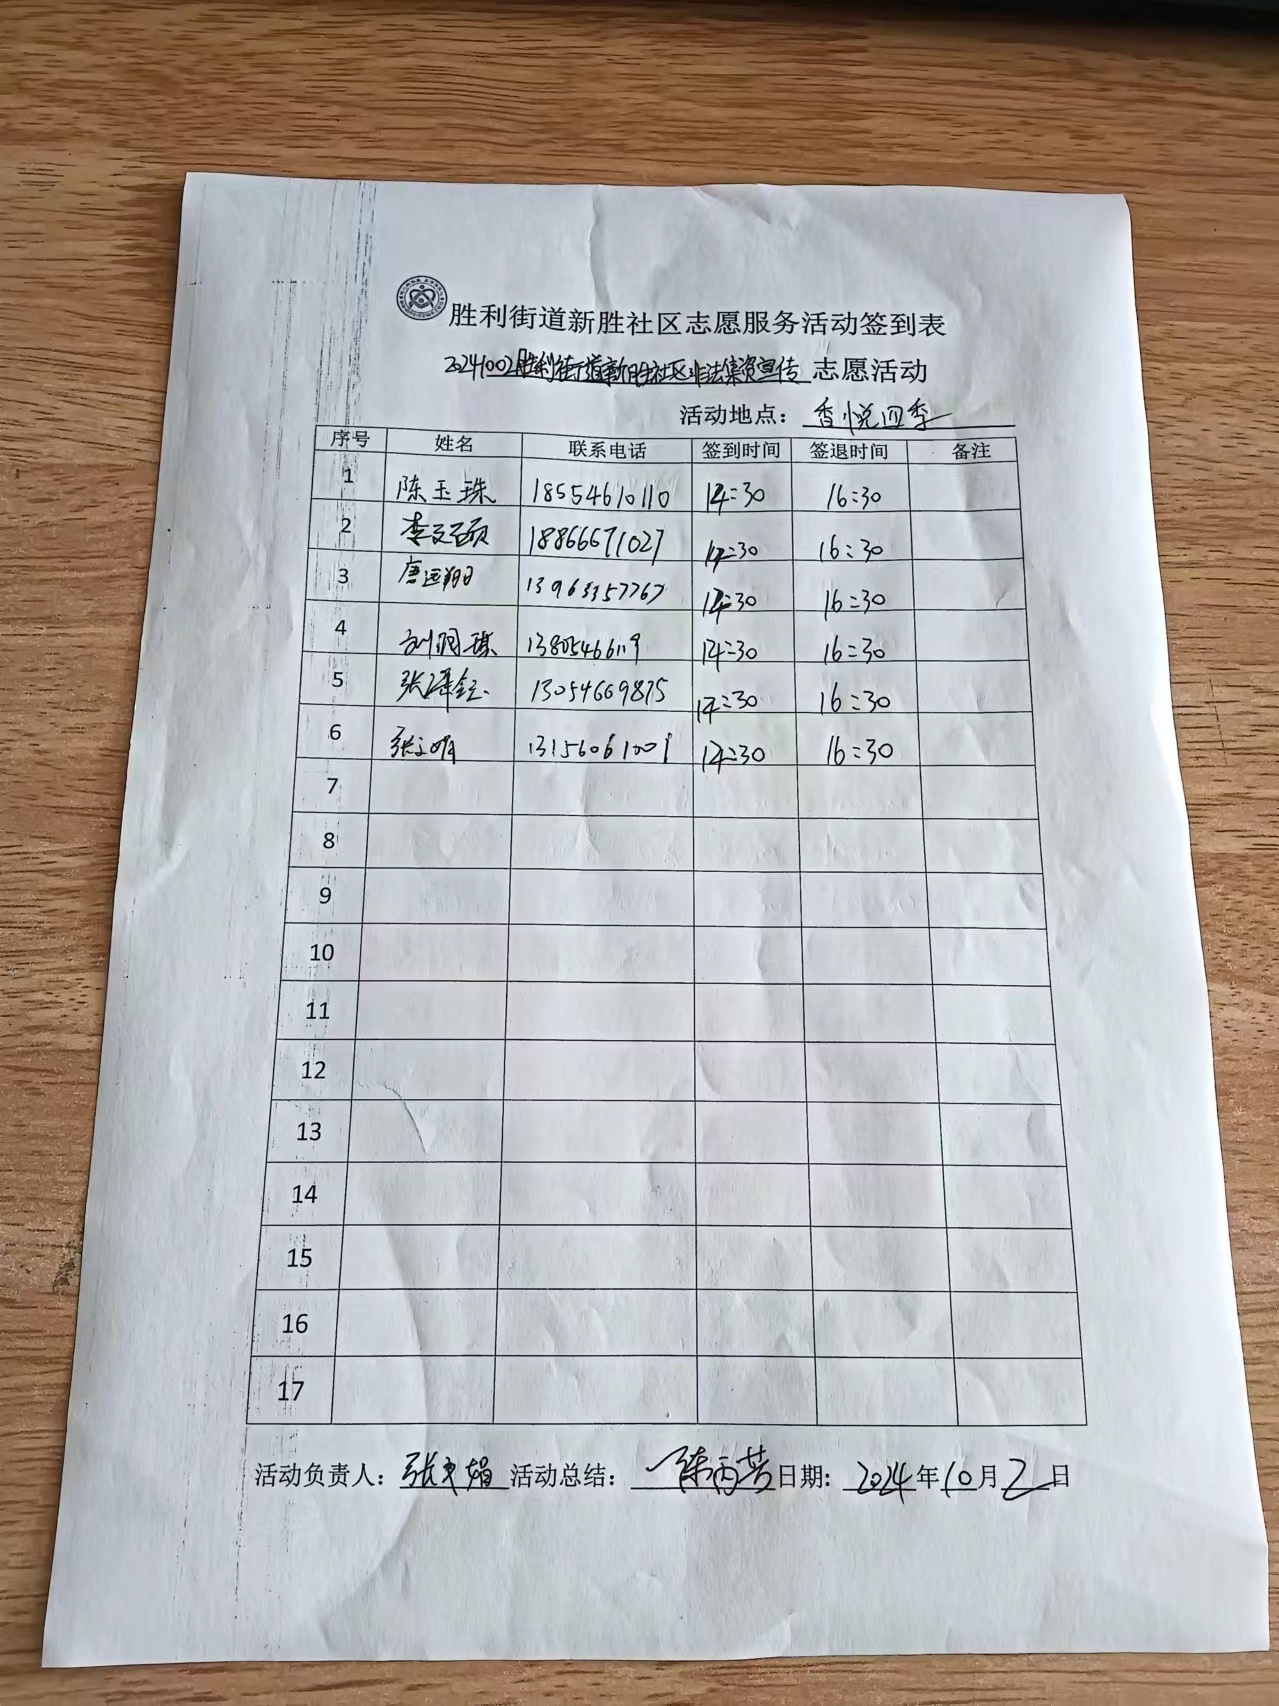 胜利街道新胜社区志愿服务活动签到表
20241002胜利街道新胜社区非法集资宣传 志愿活动
活动地点：香悦四季
序号 姓名 联系电话 签到时间 签退时间 备注
1 陈玉珠 18554610110 14:30 16:30
2 李文硕 18866671027 14:30 16:30
3 唐远翔 13963357767 14:30 16:30
4 刘润琪 1380546619 14:30 16:30
5 张泽钰 13054669875 14:30 16:30
6 张文明 13156061001 14:30 16:30
7
8
9
10
11
12
13
14
15
16
17
活动负责人：张文娟 活动总结：陈丙芳 日期：2024年10月2日